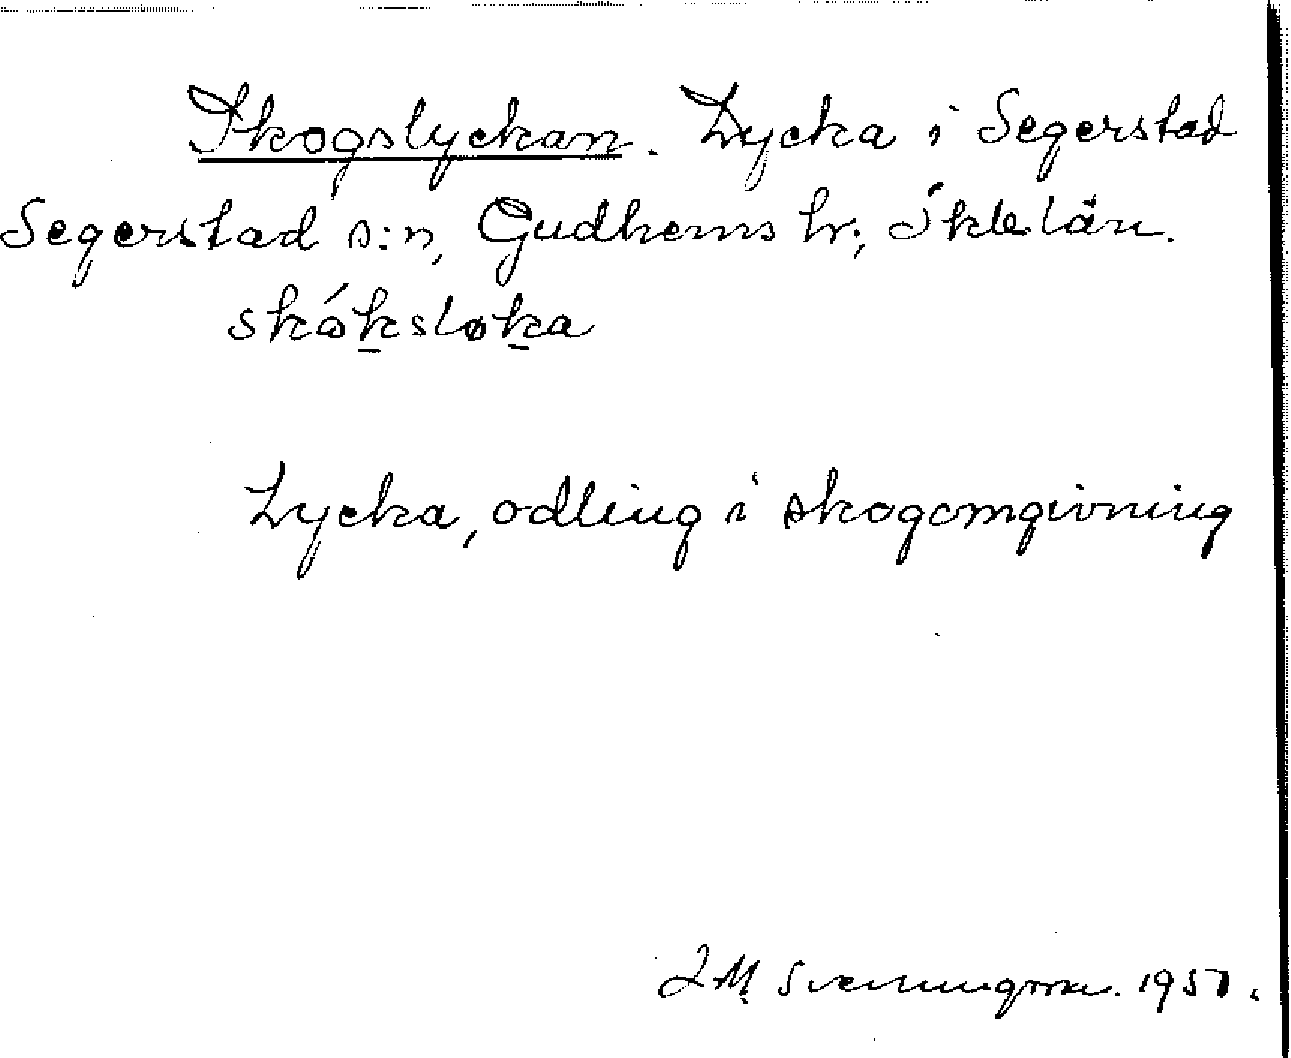 Skogslyckan. Lycka i Segerstad
Segerstad s:n, Gudhems hr, Skbl län.
skóksløka
Lycka, odling i skogomgivning
J M Svenningsson. 1951.